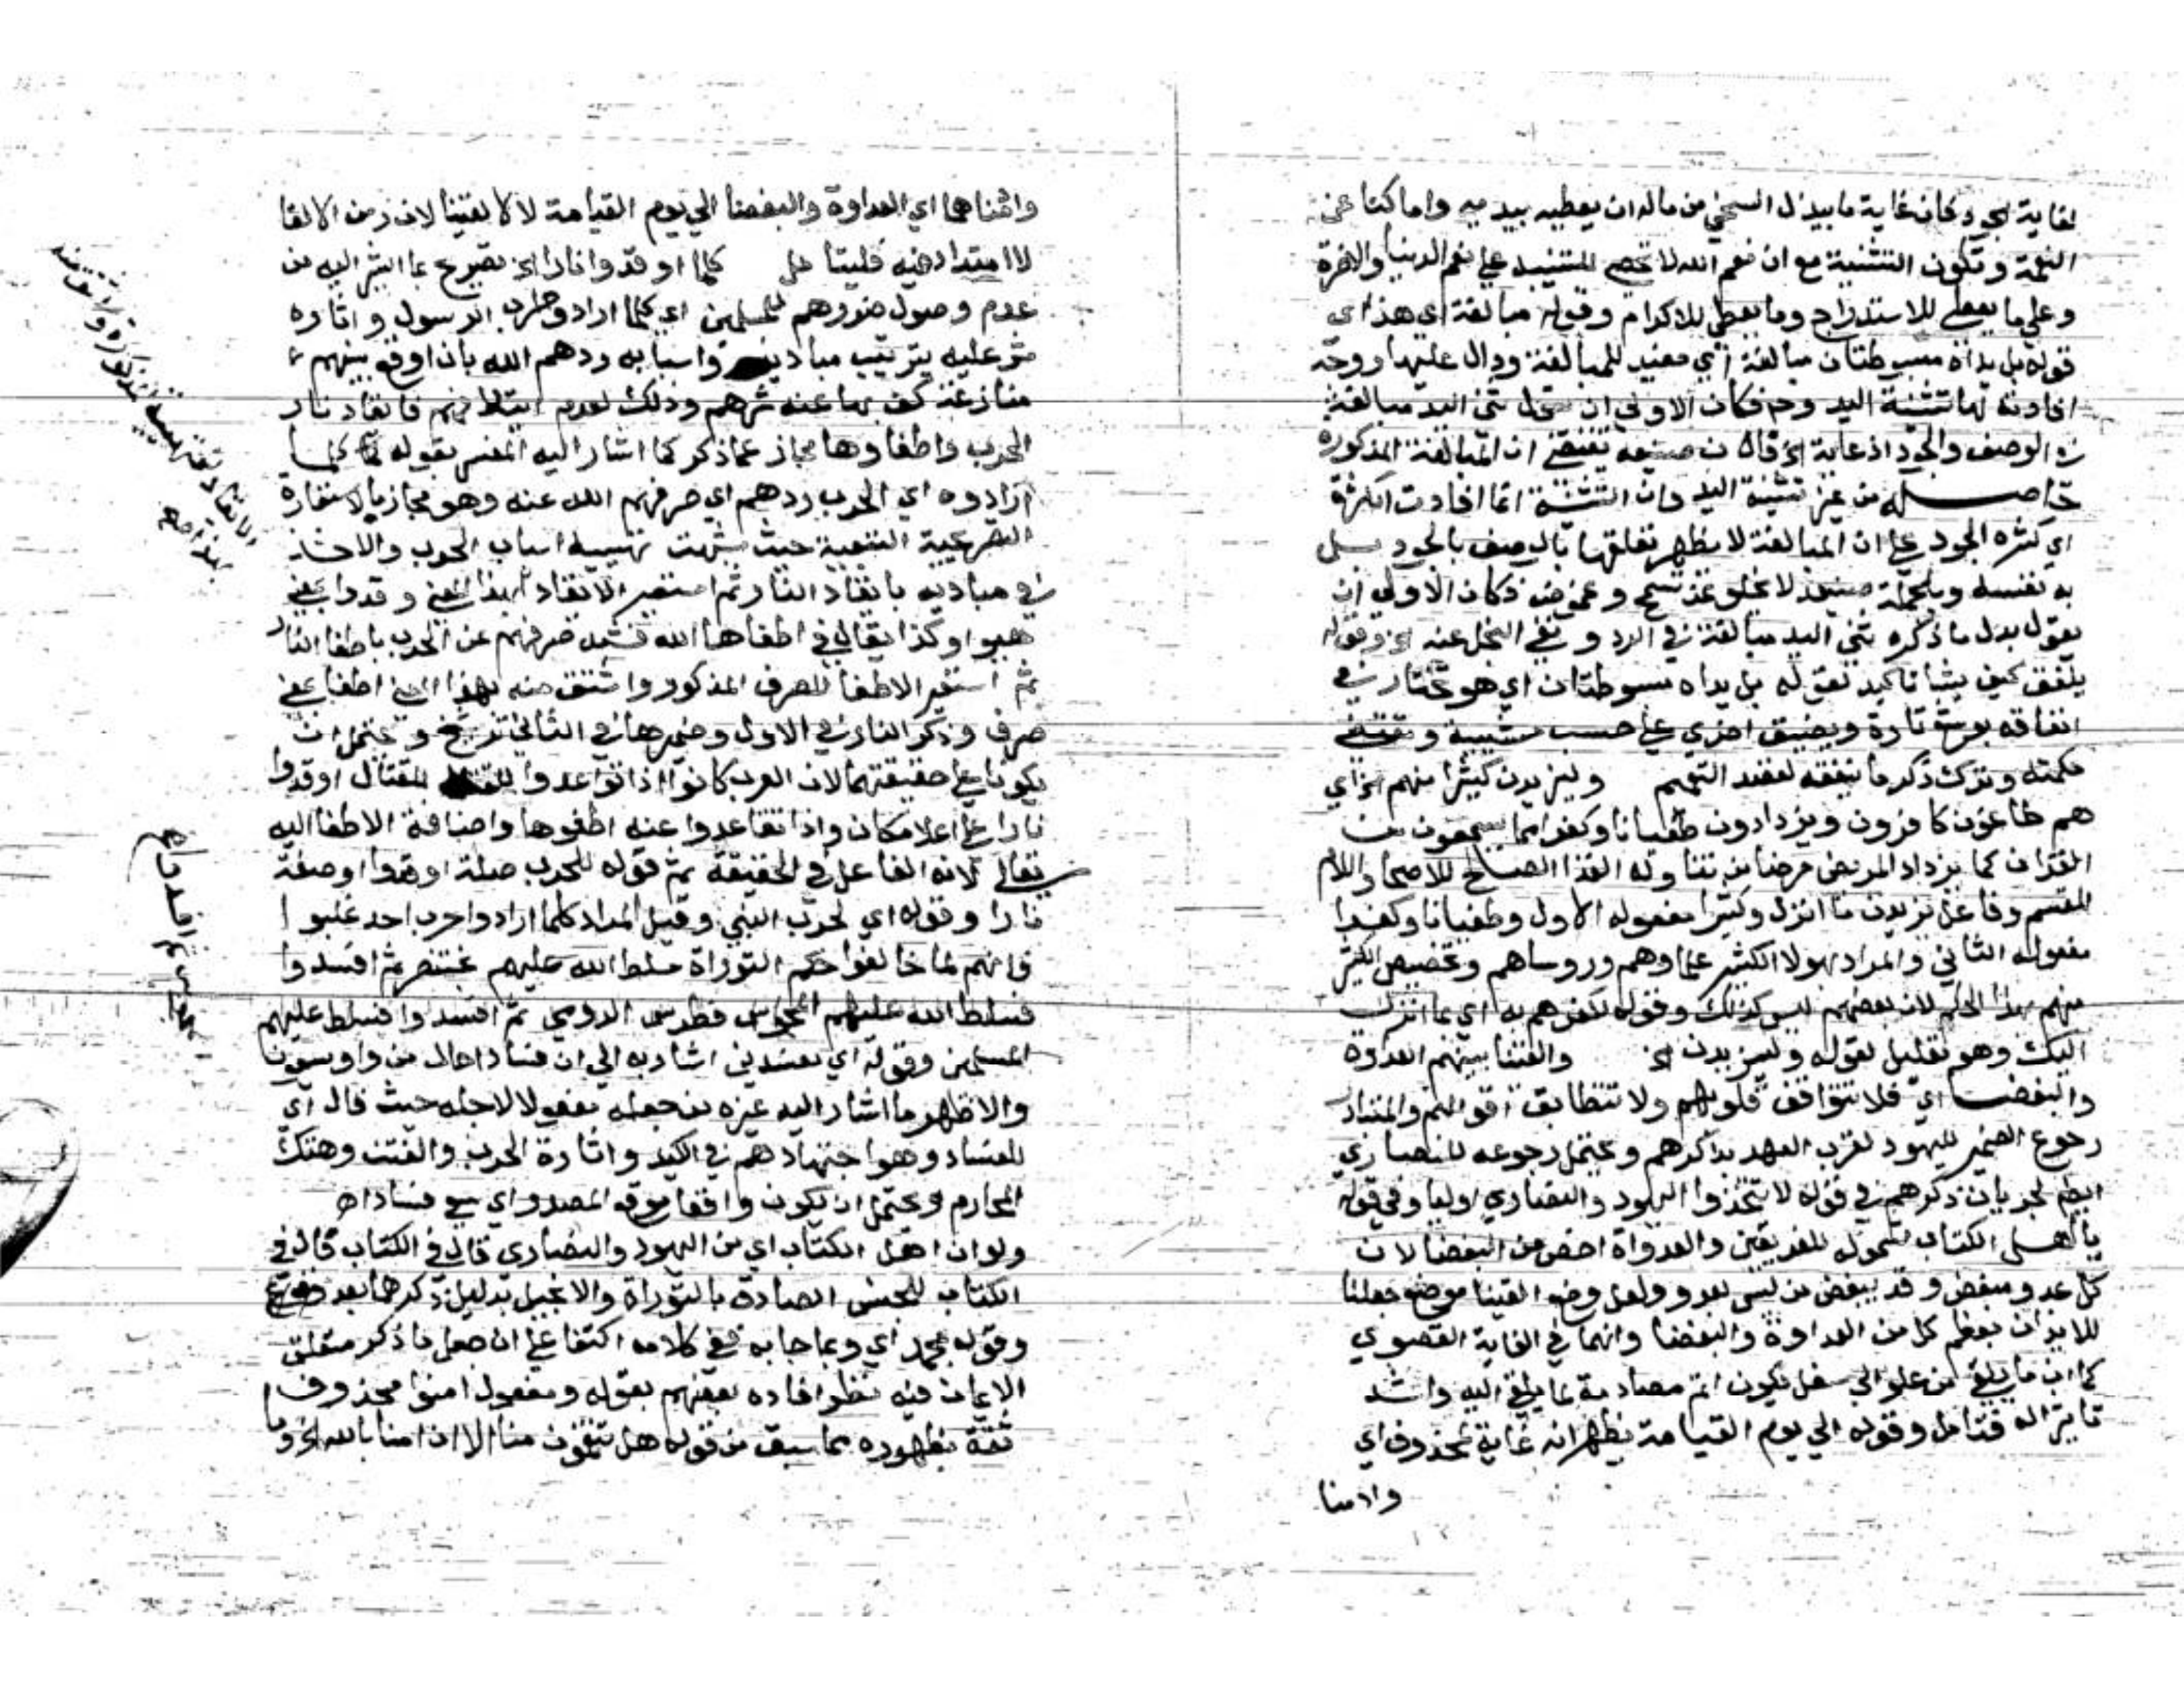 لغاية الجود فان غاية ما يبذل السخي من ماله ان يعطيه بيديه واما كنا عن
النعمة وتكون التثنية مع ان نعم الله لا تحصى للتنبيه على نعم الدنيا والاخرة
وعلى ما يعطى للاستدراج وما يعطى للاكرام وقوله مبالغة اي هذا اي
قوله بل يداه مبسوطتان مبالغة اي مفيد للمبالغة ودال عليها ووجه
افادته لها تثنية اليد وح فكان الاولى ان يقول ثنى اليد مبالغة
في الوصف والجود اذ غاية الخ فان صنيعه يقتضي ان المبالغة المذكورة
حاصله من غير تثنية اليد وان التثنية انما افادت الكثرة
اي كثرة الجود على ان المبالغة لا يظهر تعلقها بالوصف بالجود بل
به نفسه وبالجملة صنيعه لا يخلو عن تسمح وغموض فكان الاولى ان
يقول بدل ما ذكره ثنى اليد مبالغة في الرد ونفي البخل عنه الخ وقوله
ينفق كيف يشا تاكيد لقوله بل يداه مبسوطتان اي هو مختار في
انفاقه يوسع تارة ويضيق اخرى على حسب مشيته ومقتضى
حكمته وترك ذكر ما ينفقه لقصد التعميم وليزيدن كثيرا منهم الخ اي
هم طاغون كافرون ويزدادون طغيانا وكفرا بما يسمعون من
القران كما يزداد المريض مرضا من تناوله الغذا الصالح للاصحا واللام
للقسم وفاعل يزيدن ما انزل وكثيرا مفعوله الاول وطغيانا وكفرا
مفعوله الثاني والمراد بهولا الكثير علماوهم وروساهم وتخصيص الكثير
منهم بهذا الحكم لان بعضهم ليس كذلك وقوله لكفرهم به اي بما انزل
اليك وهو تعليل لقوله وليزيدن الخ والقينا بينهم العداوة
والبغضا اي فلا تتوافق قلوبهم ولا تتطابق اقوالهم والمتبادر
رجوع الضمير لليهود لقرب العهد بذكرهم ويحتمل رجوعه للنصارى
ايضا لجريان ذكرهم في قوله لا تتخذوا اليهود والنصارى اوليا وفي قوله
يا اهل الكتاب لشموله للفريقين والعدواة اخص من البغضا لان
كل عدو مبغض وقد يبغض من ليس بعدو ولعل وضع القينا موضع جعلنا
للايذان بعظم كل من العداوة والبغضا وانهما في الغاية القصوى
كما ان ما يلقى من علو الى سفل يكون اتم مصادمة لما يلقى اليه واشد
تاثيرا له فتامل وقوله الى يوم القيامة يظهر انه غاية لمحذوف اي
وادمنا
وادمناهما اي العداوة والبغضا الى يوم القيامة لا لالقينا لان زمن الالقا
لا امتداد فيه فليتامل كلما اوقدوا نارا الخ تصريح بما اشير اليه من
عدم وصول ضررهم للمسلمين اي كلما ارادوا حرب الرسول واثارة
شر عليه بترتيب مباديه واسبابه ردهم الله بان اوقع بينهم
منازعة كف بها عنه شرهم وذلك لعدم ائتلافهم فايقاد نار
الحرب واطفاوها مجاز عما ذكر كما اشار اليه المفسر بقوله كلما
ارادوه اي الحرب ردهم اي صرفهم الله عنه وهو مجاز بالاستعارة
التصريحية التبعية حيث شبهت تهيية اسباب الحرب والاخذ
في مباديه بايقاد النار ثم استعير الايقاد لهذا المعنى وقدوا بمعنى
هيوا وكذا يقال في اطفاها الله فشبه صرفهم عن الحرب باطفا النار
ثم استعير الاطفا للصرف المذكور واشتق منه بهذا المعنى اطفا بمعنى
صرف وذكر النار في الاول وضميرها في الثاني ترشيح ويحتمل ان
يكونا على حقيقتهما لان العرب كانوا اذا تواعدوا للقتال اوقدوا
نارا على اعلا مكان واذا تقاعدوا عنه اطفوها واضافة الاطفا اليه
تعالى لانه الفاعل في الحقيقة ثم قوله للحرب صلة اوقدوا او صفة
نارا وقوله اي لحرب النبي وقيل المراد كلما ارادوا حرب احد غلبوا
فانهم لما خالفوا حكم التوراة سلط الله عليهم بختنصر ثم افسدوا
فسلط الله عليهم فطرس الرومي ثم افسدوا فسلط عليهم
المسلمين وقوله اي مفسدين اشار به الى ان فسادا حال من واو يسعون
والاظهر ما اشار اليه غيره من جعله مفعولا لاجله حيث قال اي
للفساد وهو اجتهادهم في الكيد واثارة الحرب والفتن وهتك
المحارم ويحتمل ان يكون واقعا موقع المصدر اي سعي فسادا اه
ولو ان اهل الكتاب اي من اليهود والنصارى فال في الكتاب فال في
الكتاب للجنس الصادق بالتوراة والانجيل بدليل ذكرهما بعد
وقوله بمحمد اي وبما جا به ففي كلامه اكتفا على ان جعل ما ذكر متعلق
الايمان فيه نظر افاده بعضهم بقوله ومفعول امنوا محذوف
ثقة بظهوره مما سبق من قوله هل تنقمون منا الا ان امنا بالله الخ وما